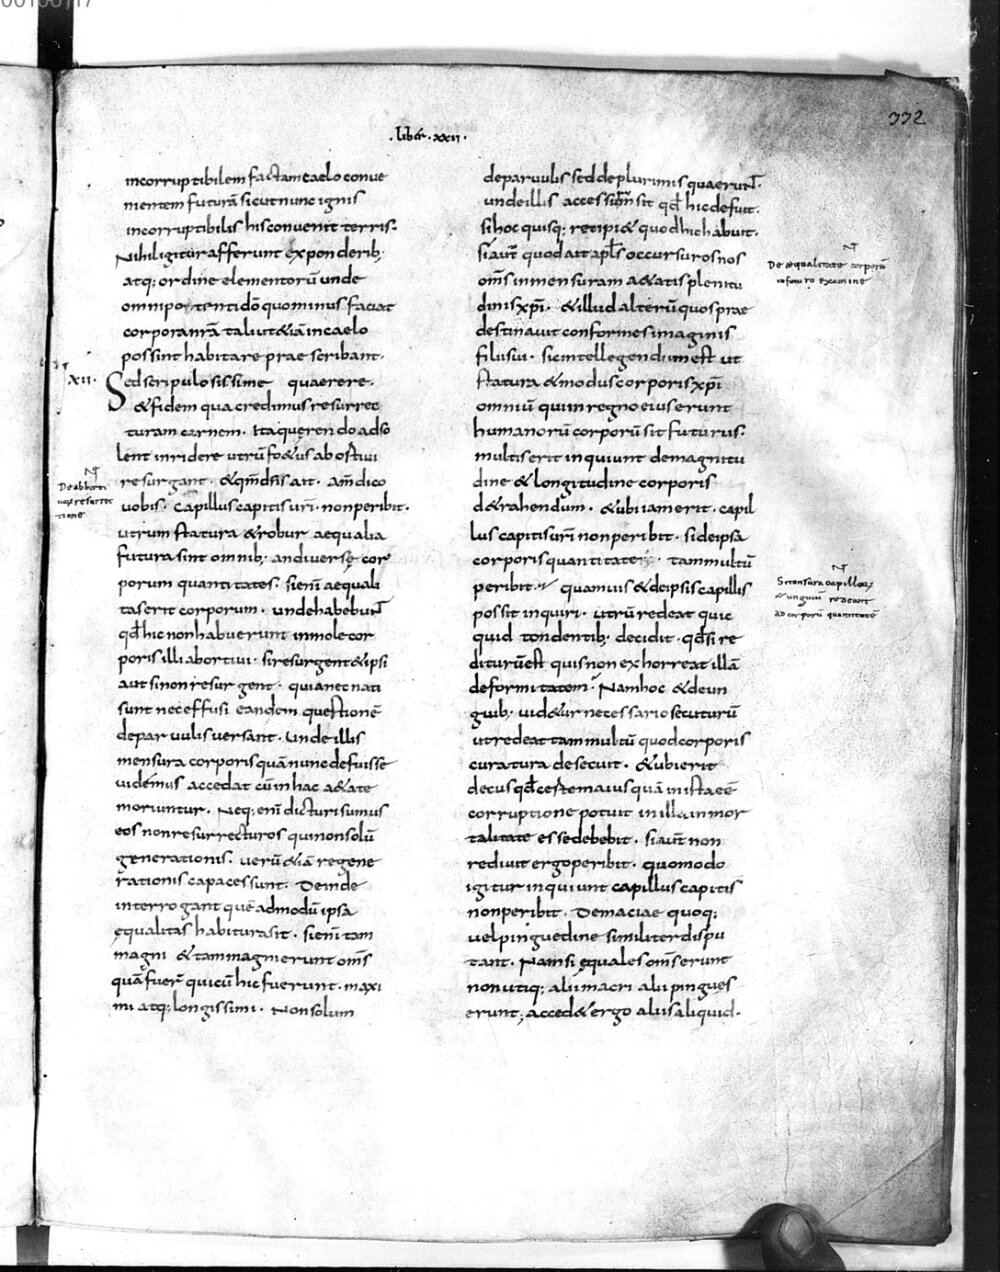 332
·liber·xxii·
incorruptibilem factam caelo conue
nientem futurā sicut nunc ignis
incorruptibilis his conuenit terris·
Nihil igitur afferunt ex ponderib;
atq; ordine elementorū unde
omnipotenti dō quominus faciat
corpora nrā talia ut &iā in caelo
possint habitare praescribant·
XII·
Sed scripulosissime quaerere·
& fidem qua credimus resurrec
turam carnem· Ita querendo adso
lent inridere utrū fo&us abortiui
resurgant· & qm̄ dn̄s ait· Am̄ dico
uobis· Capillus capitis ur̄i· non peribit·
De abborti
uorū resurrec
tione
utrum statura & robur aequalia
futura sint omnib; an diuersę cor
porum quantitates· si enī aequali
tas erit corporum· unde habebunt
qđ hic non habuerunt in mole cor
poris illi abortiui· si resurgent & ipsi
aut si non resurgent· quia nec nati
sunt nec effusi eandem questionē
de paruulis uersant· Unde illis
mensura corporis quā nunc defuisse
uidemus accedat cū in hac a&ate
moriuntur· Neq; enī dicturi sumus
eos non resurrecturos qui non solū
generationis· uerū &iā regene
rationis capaces sunt· Deinde
interrogant quē admodū ipsa
ęqualitas habitura sit· si enī tam
magni & tam magni erunt om̄s
quā fuer̄ quicū hic fuerunt· maxi
mi atq; longissimi· Non solum
de paruulis sed de plurimis quaerunt·
unde illis accessurū sit qđ hic defuit·
si hoc quisq; recipi& quod hic habuit·
si aut̄ quod ait apl̄s occursuros nos
om̄s in mensuram a&atis plenitu
De aequalitate corporū
in futuro examine
dinis xp̄i· & illud alterū quos prae
destinauit conformes imaginis
filii sui· sic intellegendum est ut
statura & modus corporis xp̄i
omniū qui in regno eius erunt
humanorū corporū sit futurus·
multis erit inquiunt de magnitu
dine & longitudine corporis
d&rahendum· & ubi iam erit· capil
lus capitis ur̄i non peribit· si de ipsa
corporis quantitate· tam multū
peribit· quamuis & de ipsis capillis
possit inquiri· utrū redeat quic
quid tondentib; decidit· qđ si re
diturū est quis non exhorreat illā
deformitatem· Nam hoc & de un
guib; uid&ur necessario secuturū
Si tonsura capillorū
& unguiū redeant
ad corporū quantitatē
ut redeat tam multū quod corporis
curatura desecuit· & ubi erit
decus qđ certe maius quā in ista eē
corruptione potuit in illa inmor
talitate esse debebit· si aut̄ non
rediuit ergo peribit· quomodo
igitur inquiunt capillus capitis
non peribit· De maciae quoq;
uel pinguedine similiter dispu
tant· Nam si ęquales om̄s erunt
non utiq; alii macri alii pingues
erunt; acced& ergo aliis aliquid·